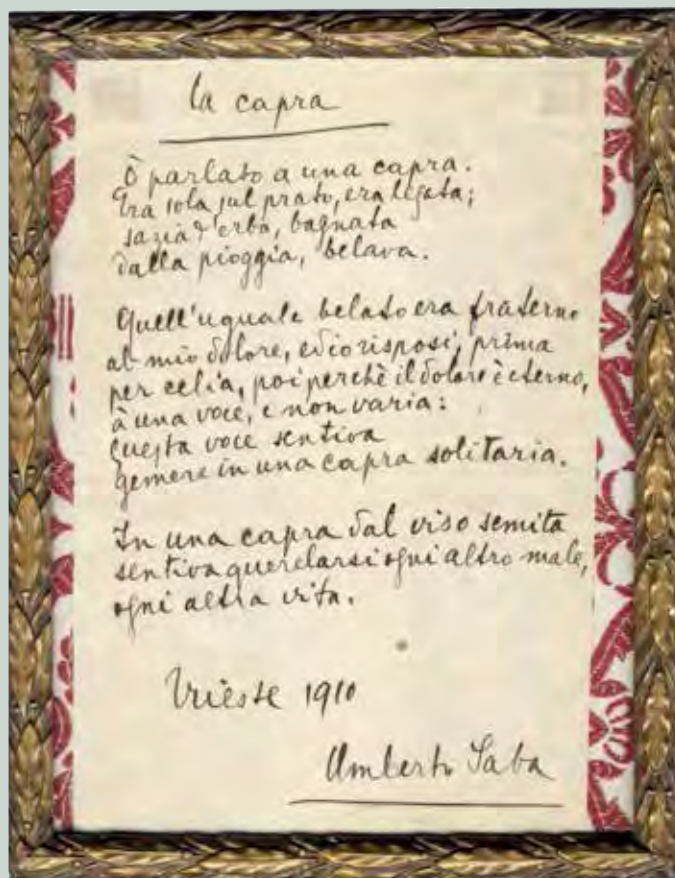 La capra
Ò parlato a una capra.
Era sola sul prato, era legata;
sazia d'erba, bagnata
dalla pioggia, belava.
Quell'uguale belato era fraterno
al mio dolore, ed io risposi, prima
per celia, poi perchè il dolore è eterno,
à una voce, e non varia:
questa voce sentiva
gemere in una capra solitaria.
In una capra dal viso semita
sentiva querelarsi ogni altro male,
ogni altra vita.
Trieste 1910
Umberto Saba